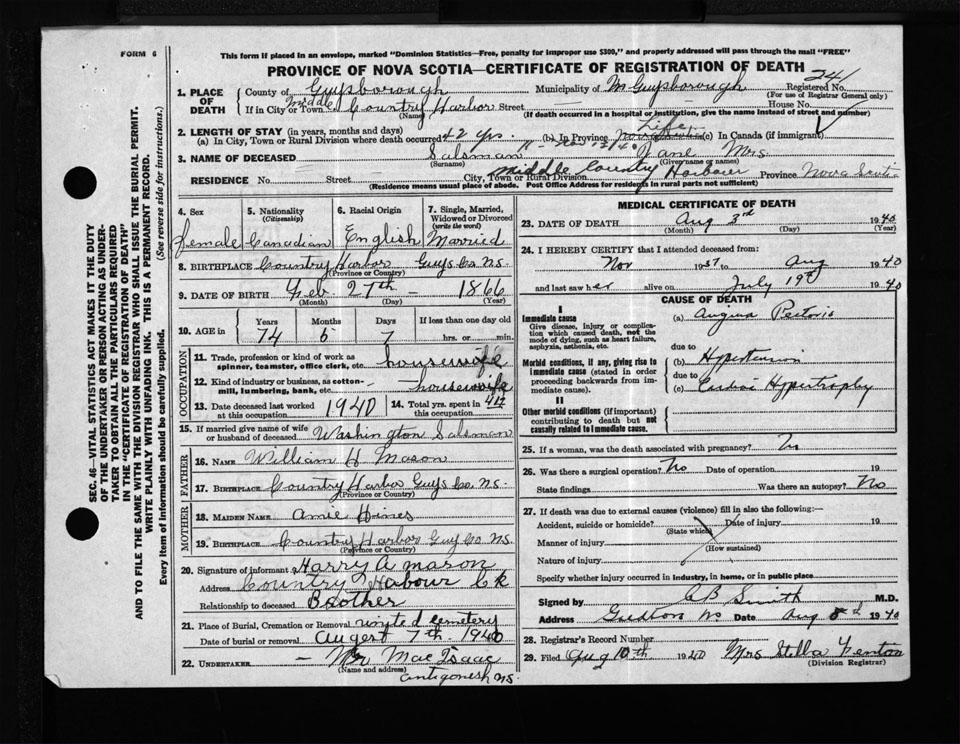 FORM 6
This form if placed in an envelope, marked "Dominion Statistics—Free, penalty for improper use $300," and properly addressed will pass through the mail "FREE"
PROVINCE OF NOVA SCOTIA—CERTIFICATE OF REGISTRATION OF DEATH
SEC. 46—VITAL STATISTICS ACT MAKES IT THE DUTY
OF THE UNDERTAKER OR PERSON ACTING AS UNDER-
TAKER TO OBTAIN ALL THE PARTICULARS REQUIRED
IN THE "CERTIFICATE OF REGISTRATION OF DEATH"
AND TO FILE THE SAME WITH THE DIVISION REGISTRAR WHO SHALL ISSUE THE BURIAL PERMIT.
WRITE PLAINLY WITH UNFADING INK. THIS IS A PERMANENT RECORD.
Every item of information should be carefully supplied. (See reverse side for instructions.)
1. PLACE OF DEATH County of Guysborough Municipality of M Guysborough Registered No. 241
(For use of Registrar General only)
If in City or Town Middle Country Harbor Street House No.
(Name) (If death occurred in a hospital or institution, give the name instead of street and number)
2. LENGTH OF STAY (in years, months and days)
(a) In City, Town or Rural Division where death occurred 42 yrs. (b) In Province Life (c) In Canada (if immigrant)
3. NAME OF DECEASED Salsman Jane Mrs.
(Surname) (Given name or names)
RESIDENCE No. Street City, Town or Rural Division Middle Country Harbour Province Nova Scotia
(Residence means usual place of abode. Post Office Address for residents in rural parts not sufficient)
4. Sex Female
5. Nationality (Citizenship) Canadian
6. Racial Origin English
7. Single, Married, Widowed or Divorced (write the word) Married
8. BIRTHPLACE Country Harbor Guys Co. N.S.
(Province or Country)
9. DATE OF BIRTH Feb 27th 1866
(Month) (Day) (Year)
10. AGE in Years 74 Months 5 Days 7 If less than one day old hrs. or min.
OCCUPATION
11. Trade, profession or kind of work as spinner, teamster, office clerk, etc. housewife
12. Kind of industry or business, as cotton-mill, lumbering, bank, etc. housewife
13. Date deceased last worked at this occupation 1940 14. Total yrs. spent in this occupation
15. If married give name of wife or husband of deceased Washington Salsman
FATHER
16. NAME William H Mason
17. BIRTHPLACE Country Harbor Guys Co. N.S.
(Province or Country)
MOTHER
18. MAIDEN NAME Amie Hines
19. BIRTHPLACE Country Harbor Guy Co N.S.
(Province or Country)
20. Signature of informant Harry A Mason
Address Country Harbour Ck
Relationship to deceased Brother
21. Place of Burial, Cremation or Removal united cemetery
Date of burial or removal August 7th 1940
22. UNDERTAKER Mr Mac Isaac
(Name and address)
Antigonish N.S.
MEDICAL CERTIFICATE OF DEATH
23. DATE OF DEATH Aug 3rd 1940
(Month) (Day) (Year)
24. I HEREBY CERTIFY that I attended deceased from:
Nov 1937 to Aug 1940
and last saw her alive on July 19 1940
CAUSE OF DEATH
Immediate cause
Give disease, injury or complication which caused death, not the mode of dying, such as heart failure, asphyxia, asthenia, etc.
(a) Angina Pectoris
due to
Morbid conditions, if any, giving rise to immediate cause (stated in order proceeding backwards from immediate cause).
(b) Hypertension
due to
(c) Hypertrophy
II
Other morbid conditions (if important) contributing to death but not causally related to immediate cause.
25. If a woman, was the death associated with pregnancy? No
26. Was there a surgical operation? No Date of operation 19
State findings Was there an autopsy? No
27. If death was due to external causes (violence) fill in also the following:—
Accident, suicide or homicide? Date of injury 19
(State which)
Manner of injury
(How sustained)
Nature of injury
Specify whether injury occurred in industry, in home, or in public place
Signed by C B Smith M.D.
Address Date Aug 1940
28. Registrar's Record Number
29. Filed Aug 10th 1940 Mrs Stella Fenton
(Division Registrar)